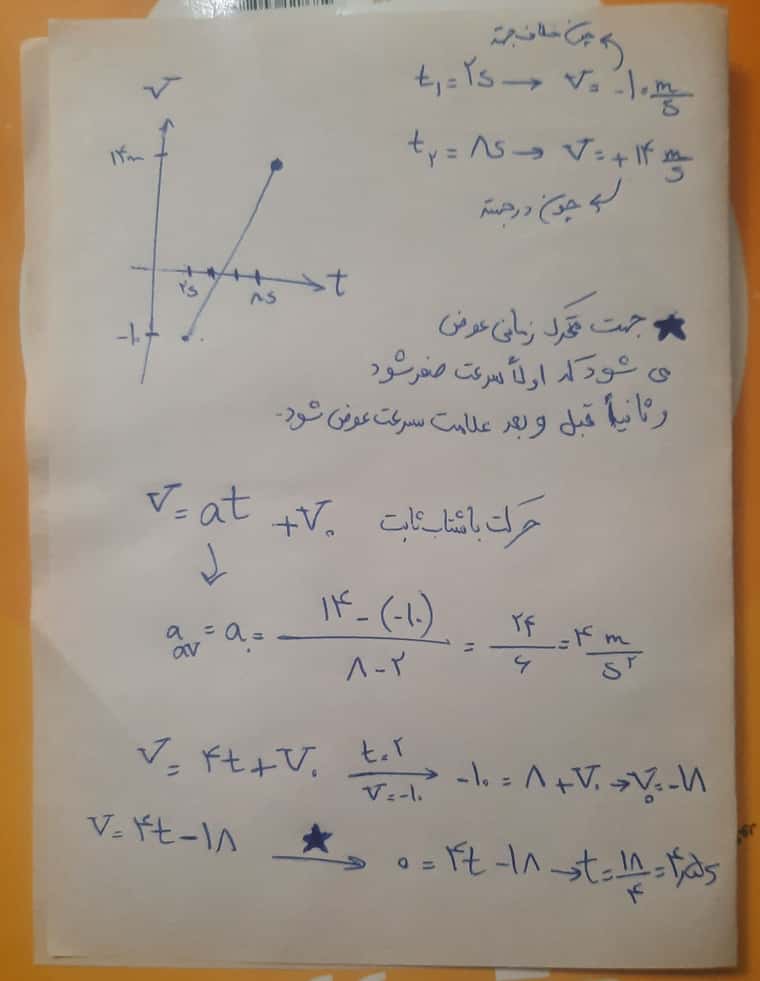 چون خلاف جهت
t₁ = ۲s → V = -۱۰ m/s
t₂ = ۸s → V = +۱۴ m/s
چون در جهت
V
۱۴m
t
۲s
۸s
-۱۰
★ جهت متحرک زمانی عوض
می شود که اولاً سرعت صفر شود
و ثانیاً قبل و بعد علامت سرعت عوض شود.
V = at + V₀ حرکت با شتاب ثابت
a_av = a₀ = ۱۴ - (-۱۰) / ۸ - ۲ = ۲۴ / ۶ = ۴ m/s²
V = ۴t + V₀ t = ۲ V = -۱۰ → -۱۰ = ۸ + V₀ → V₀ = -۱۸
V = ۴t - ۱۸ ★ → ۰ = ۴t - ۱۸ → t = ۱۸ / ۴ = ۴٫۵s